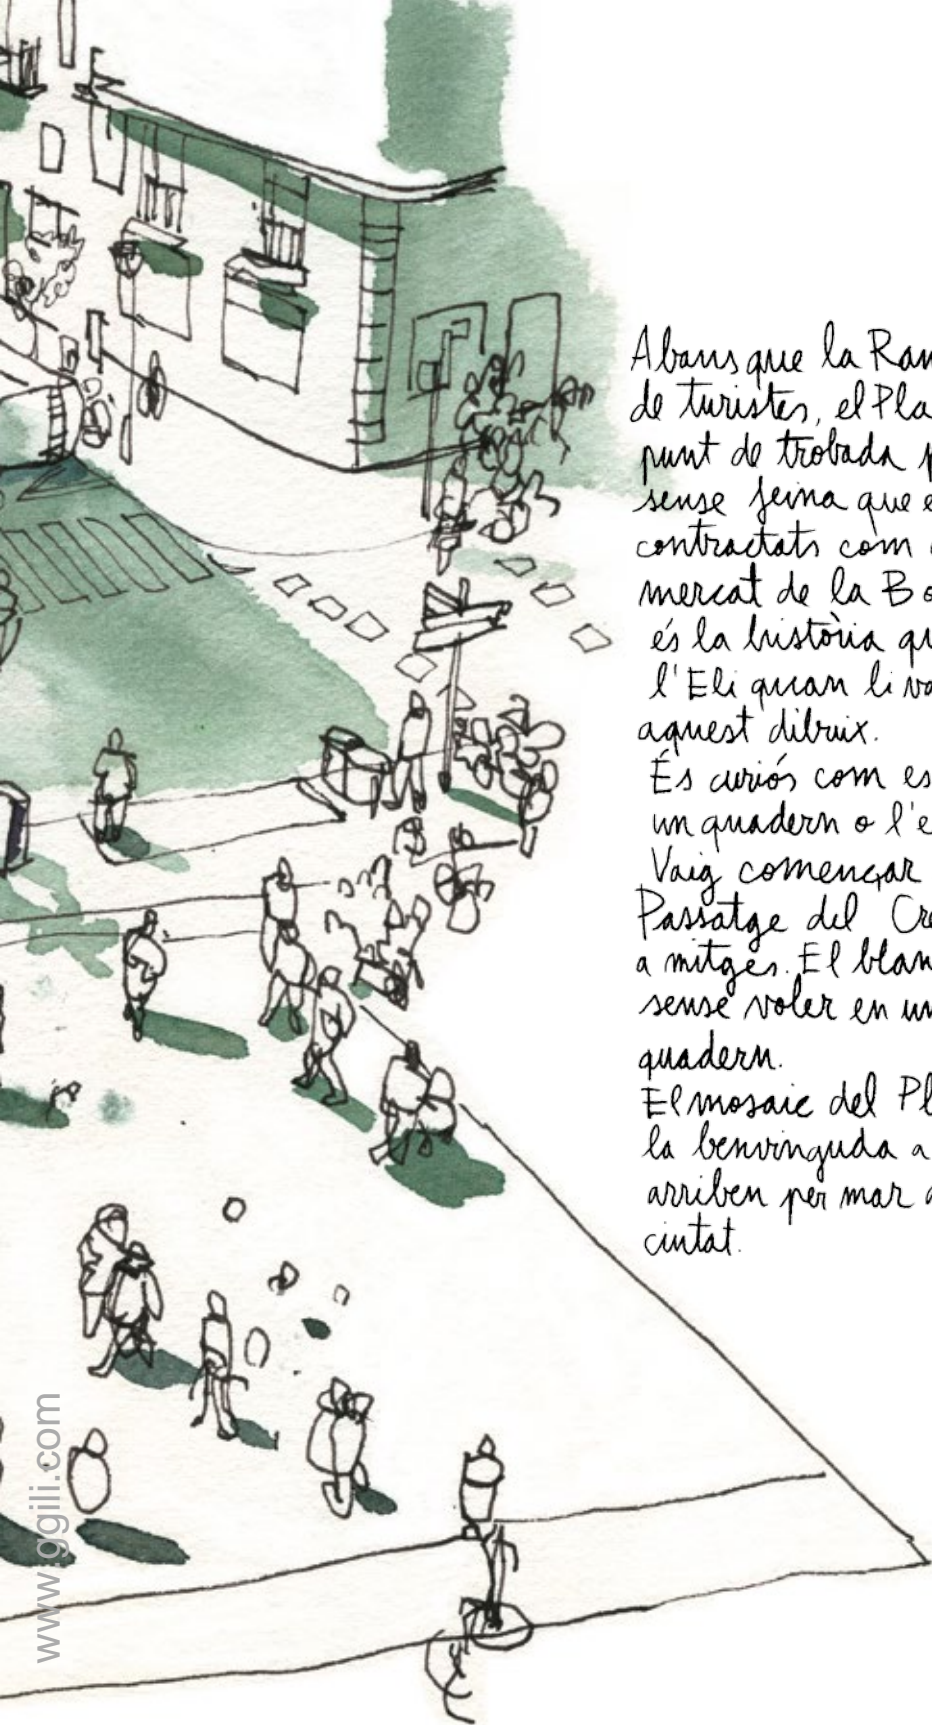 Abans que la Ram
de turistes, el Pla
punt de trobada p
sense feina que e
contractats com
mercat de la Bo
és la història qu
l'Eli quan li va
aquest dibuix.
És curiós com es
un quadern o l'e
Vaig començar
Passatge del Cre
a mitges. El blan
sense voler en un
quadern.
El mosaic del Pl
la benvinguda a
arriben per mar a
ciutat.
www.ggili.com